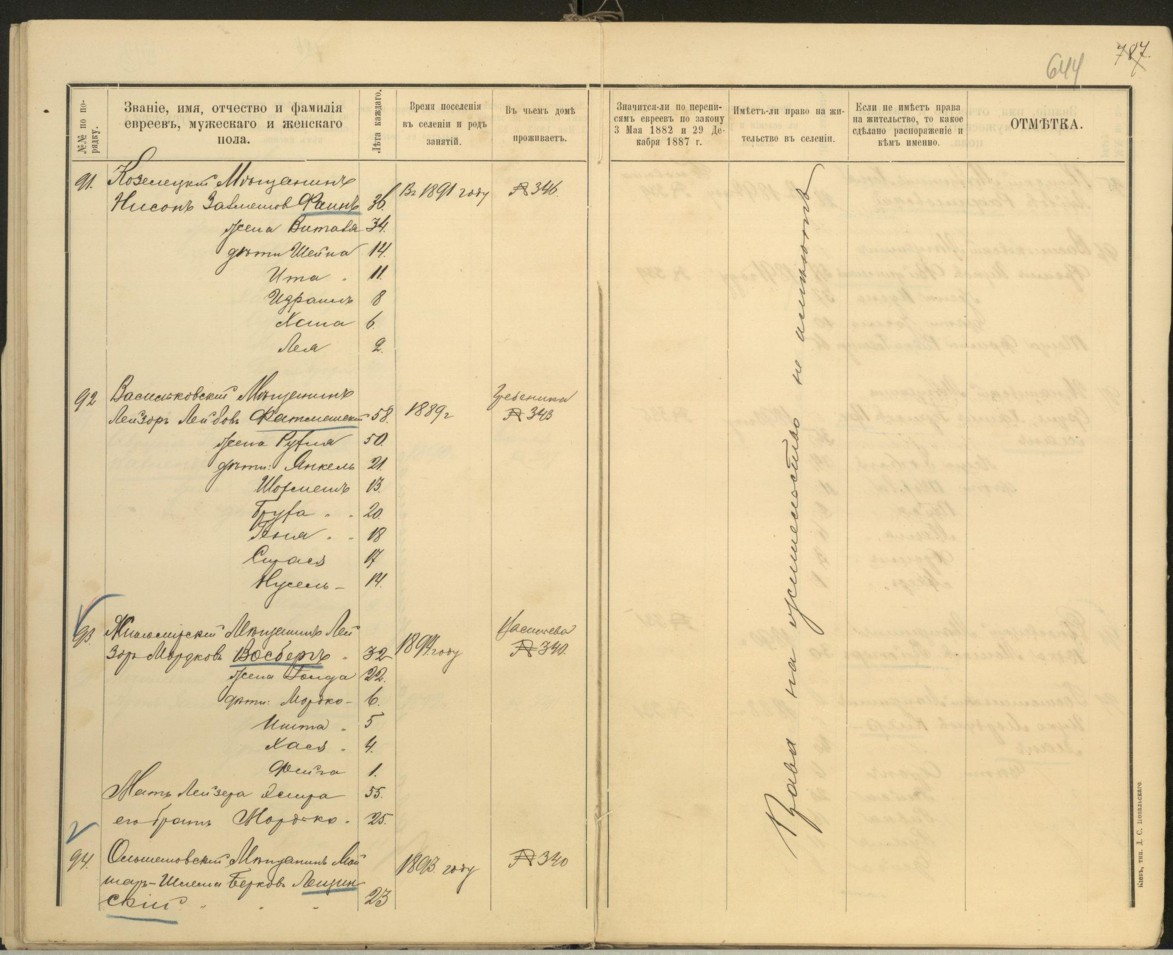 644
787.
№№ по по-
рядку.
Званіе, имя, отчество и фамилія
евреевъ, мужескаго и женскаго
пола.
Лѣта каждаго.
Время поселенія
въ селеніи и родъ
занятій.
Въ чьемъ домѣ
проживаетъ.
Значится-ли по перепи-
сямъ евреевъ по закону
3 Мая 1882 и 29 Де-
кабря 1887 г.
Имѣетъ-ли право на жи-
тельство въ селеніи.
Если не имѣетъ права
на жительство, то какое
сдѣлано распоряженіе и
кѣмъ именно.
ОТМѢТКА.
91. Козелецкій Мѣщанинъ
Нисонъ 36 Въ 1891 году № 346
Жена 34.
дѣти Шейна 14.
Ита 11
8
Хана 6.
Лея 2.
92 Васильковскій Мѣщанинъ
Лейзоръ Лейбовъ 58. 1889 г № 343
Жена Рухля 50.
дѣти: Янкель 21.
13.
20.
18
17
Нусель 14.
93 Житомирскій Мѣщанинъ Лей
зоръ Мордковъ 32 году № 340.
Жена Голда 22.
дѣти: Мордко 6.
5
Хася 4.
Фейга 1.
Мать Лейзера Эстра 55.
его братъ Мордко 25.
94. Мѣщанинъ 1893 году № 340
Шлема Берковъ Лещин
скій 23
Права на жительство не имѣютъ
Кіевъ, тип.